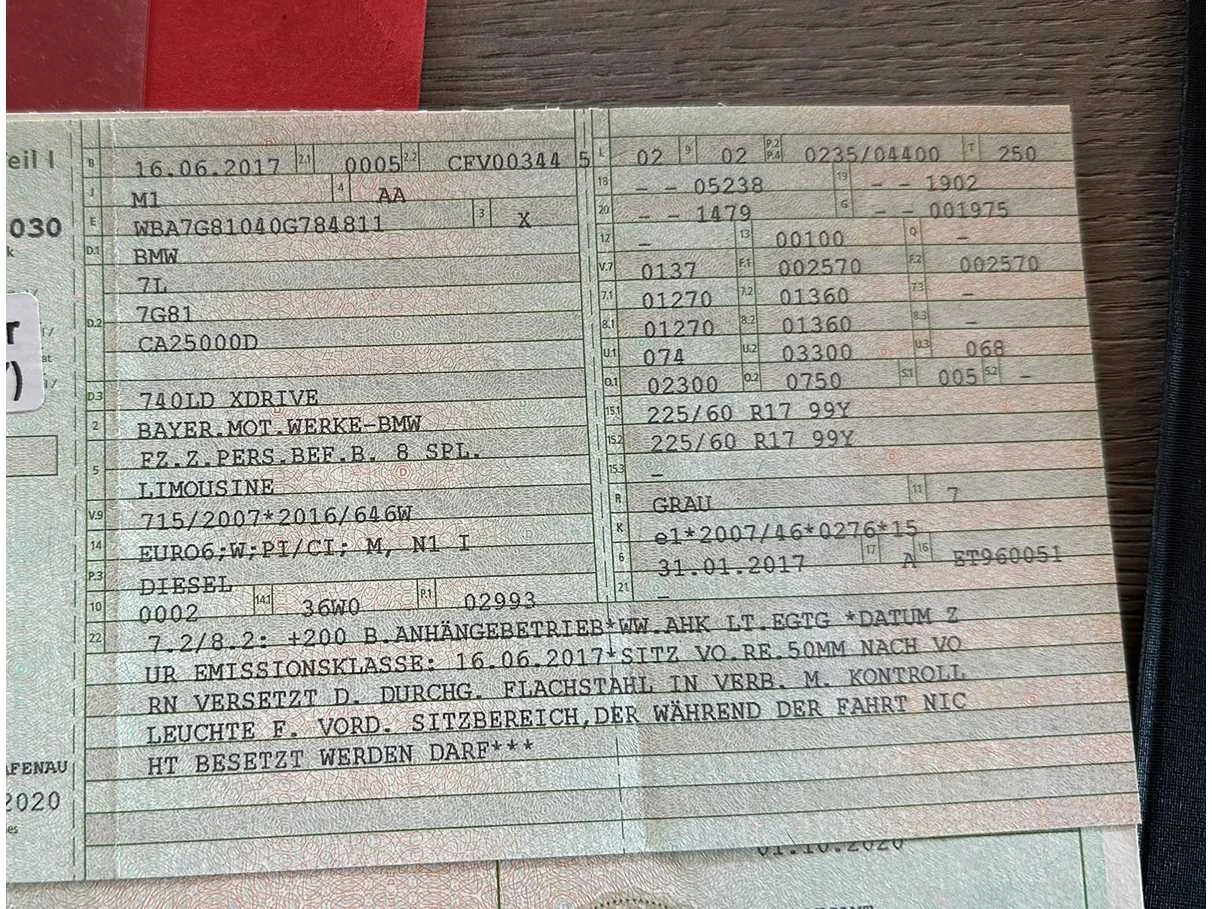 eil I
030
AFENAU
2020
B 16.06.2017 2.1 0005 2.2 CFV00344 5
J M1 4 AA
E WBA7G81040G784811 3 X
D.1 BMW
7L
D.2 7G81
CA25000D
D.3 740LD XDRIVE
2 BAYER.MOT.WERKE-BMW
FZ.Z.PERS.BEF.B. 8 SPL.
5 LIMOUSINE
V.9 715/2007*2016/646W
14 EURO6;W;PI/CI; M, N1 I
P.3 DIESEL
10 0002 14.1 36W0 P.1 02993
L 02 9 02 P.2 P.4 0235/04400 T 250
18 - - 05238 19 - - 1902
20 - - 1479 G - - 001975
12 - 13 00100 Q -
V.7 0137 F.1 002570 F.2 002570
7.1 01270 7.2 01360 7.3 -
8.1 01270 8.2 01360 8.3 -
U.1 074 U.2 03300 U.3 068
O.1 02300 O.2 0750 S.1 005 S.2 -
15.1 225/60 R17 99Y
15.2 225/60 R17 99Y
15.3 -
R GRAU 11 7
K e1*2007/46*0276*15
6 31.01.2017 17 A 16 ET960051
21 -
22 7.2/8.2: +200 B.ANHÄNGEBETRIEB*WW.AHK LT.EGTG *DATUM Z
UR EMISSIONSKLASSE: 16.06.2017*SITZ VO.RE.50MM NACH VO
RN VERSETZT D. DURCHG. FLACHSTAHL IN VERB. M. KONTROLL
LEUCHTE F. VORD. SITZBEREICH,DER WÄHREND DER FAHRT NIC
HT BESETZT WERDEN DARF***
01.10.2020